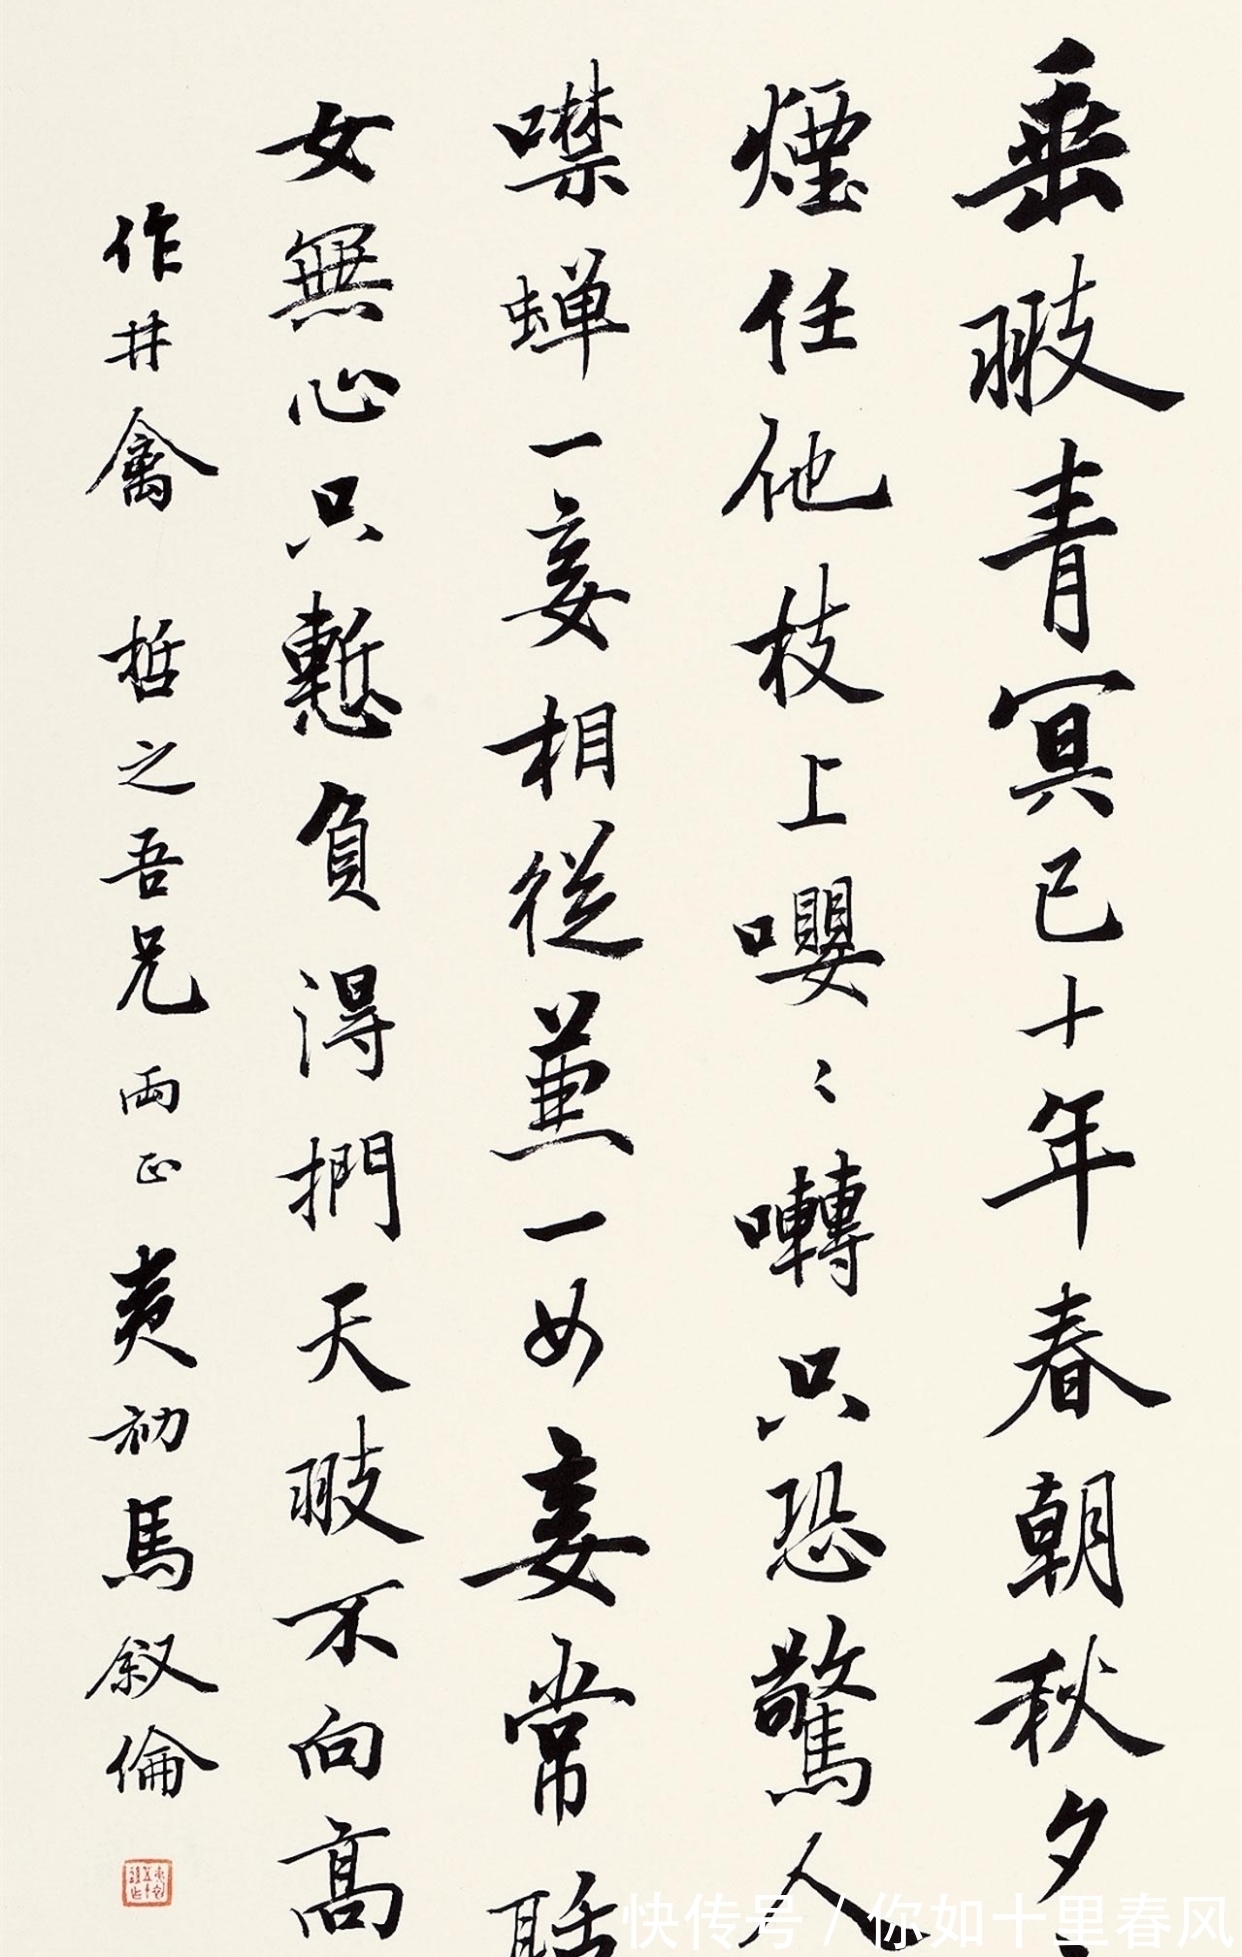 垂翅青冥已十年春朝秋夕
煙任他枝上嚶〻囀只恐驚人
噤蟬一妾相從兼一女妾常聒
女無心只慙負得捫天翅不向高
作井禽 哲之吾兄兩正 夷初馬叙倫
快传号/你如十里春风